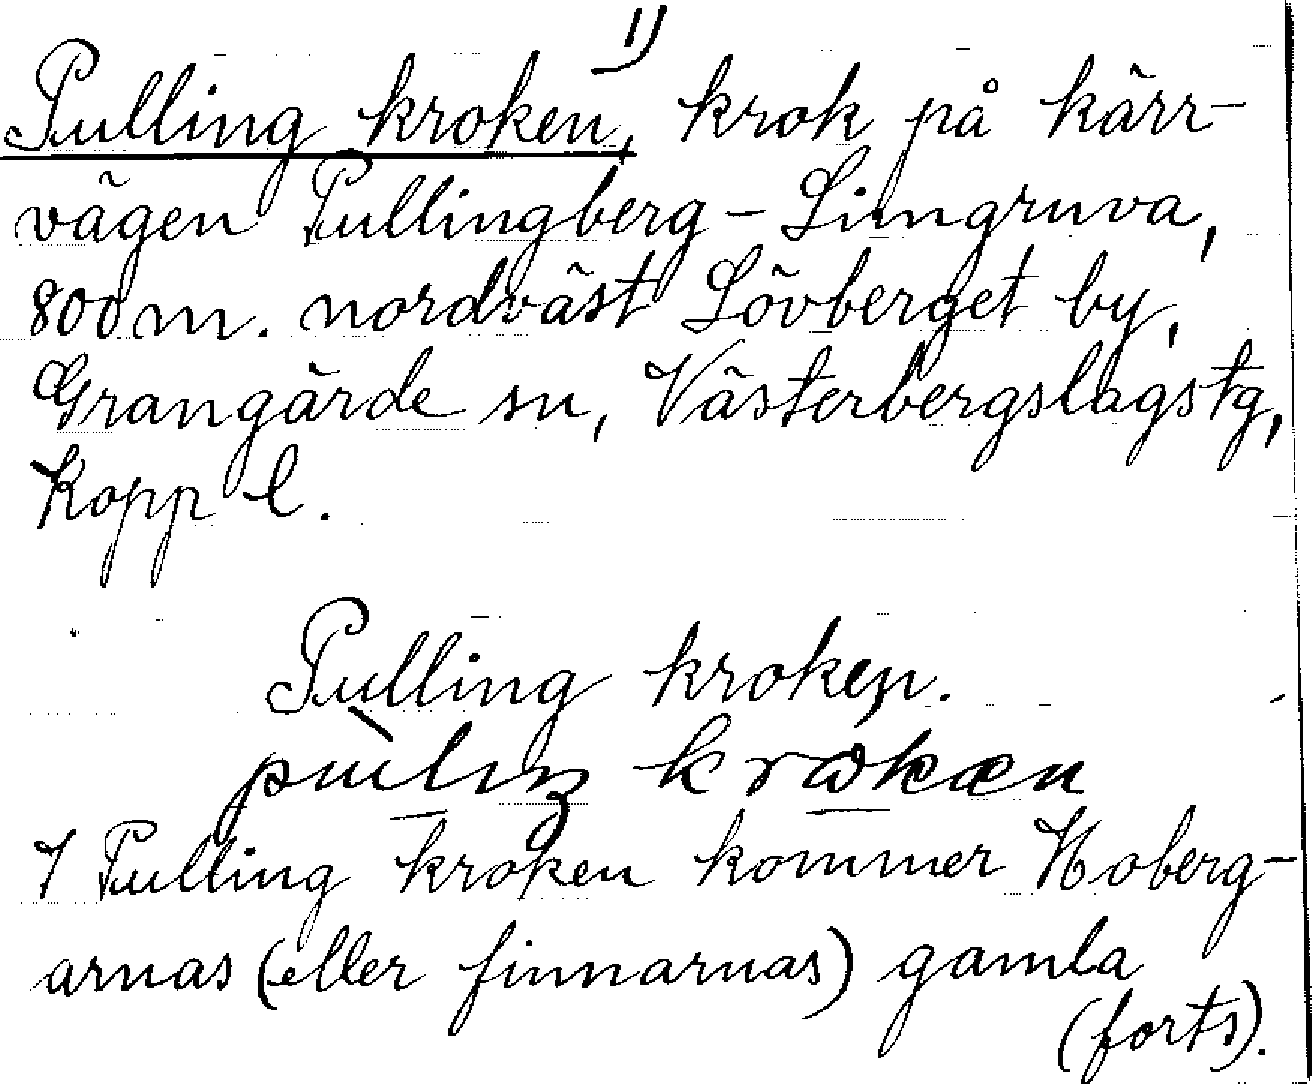 1)
Pulling kroken, krok på kärr-
vägen Pullingberg - Limgruva,
800 m. nordväst Lövberget by,
Grangärde sn, Västerbergslagstg,
Kopp l.
Pulling kroken.
I Pulling kroken kommer Noberg-
arnas (eller finnarnas) gamla
(forts).